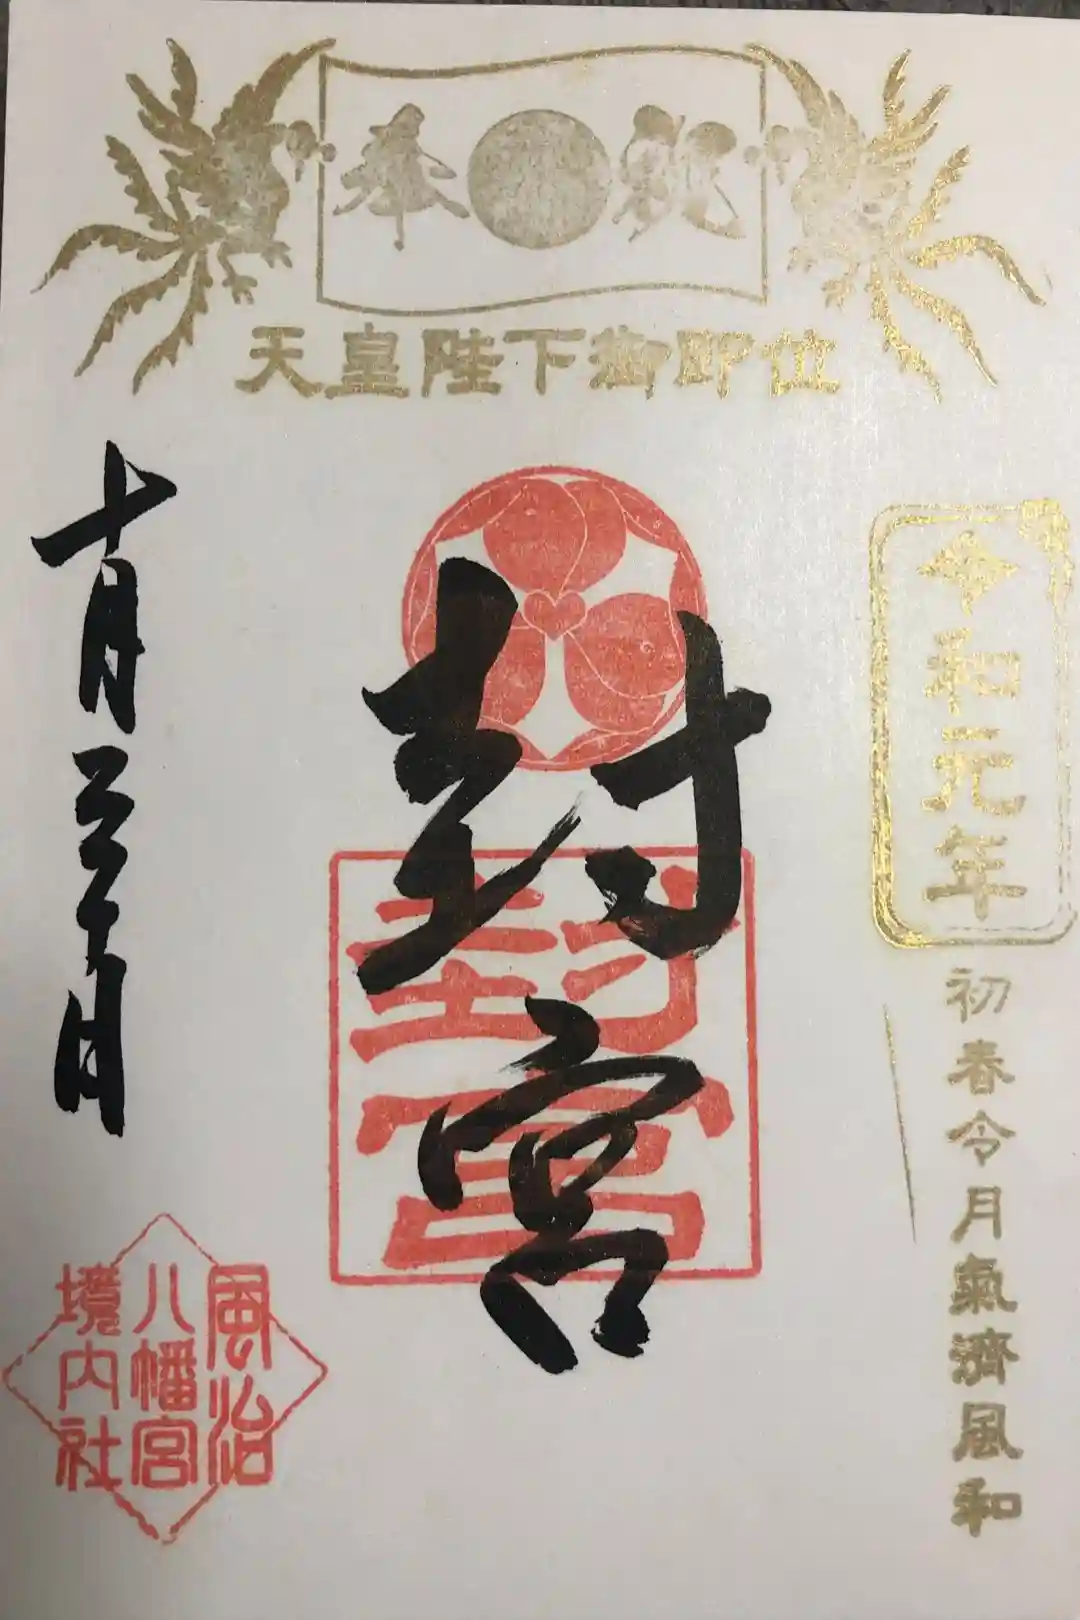 奉祝
天皇陛下御即位
令和元年
初春令月氣濟風和
封宮
封宮
十月三十日
風治
八幡宮
境内社